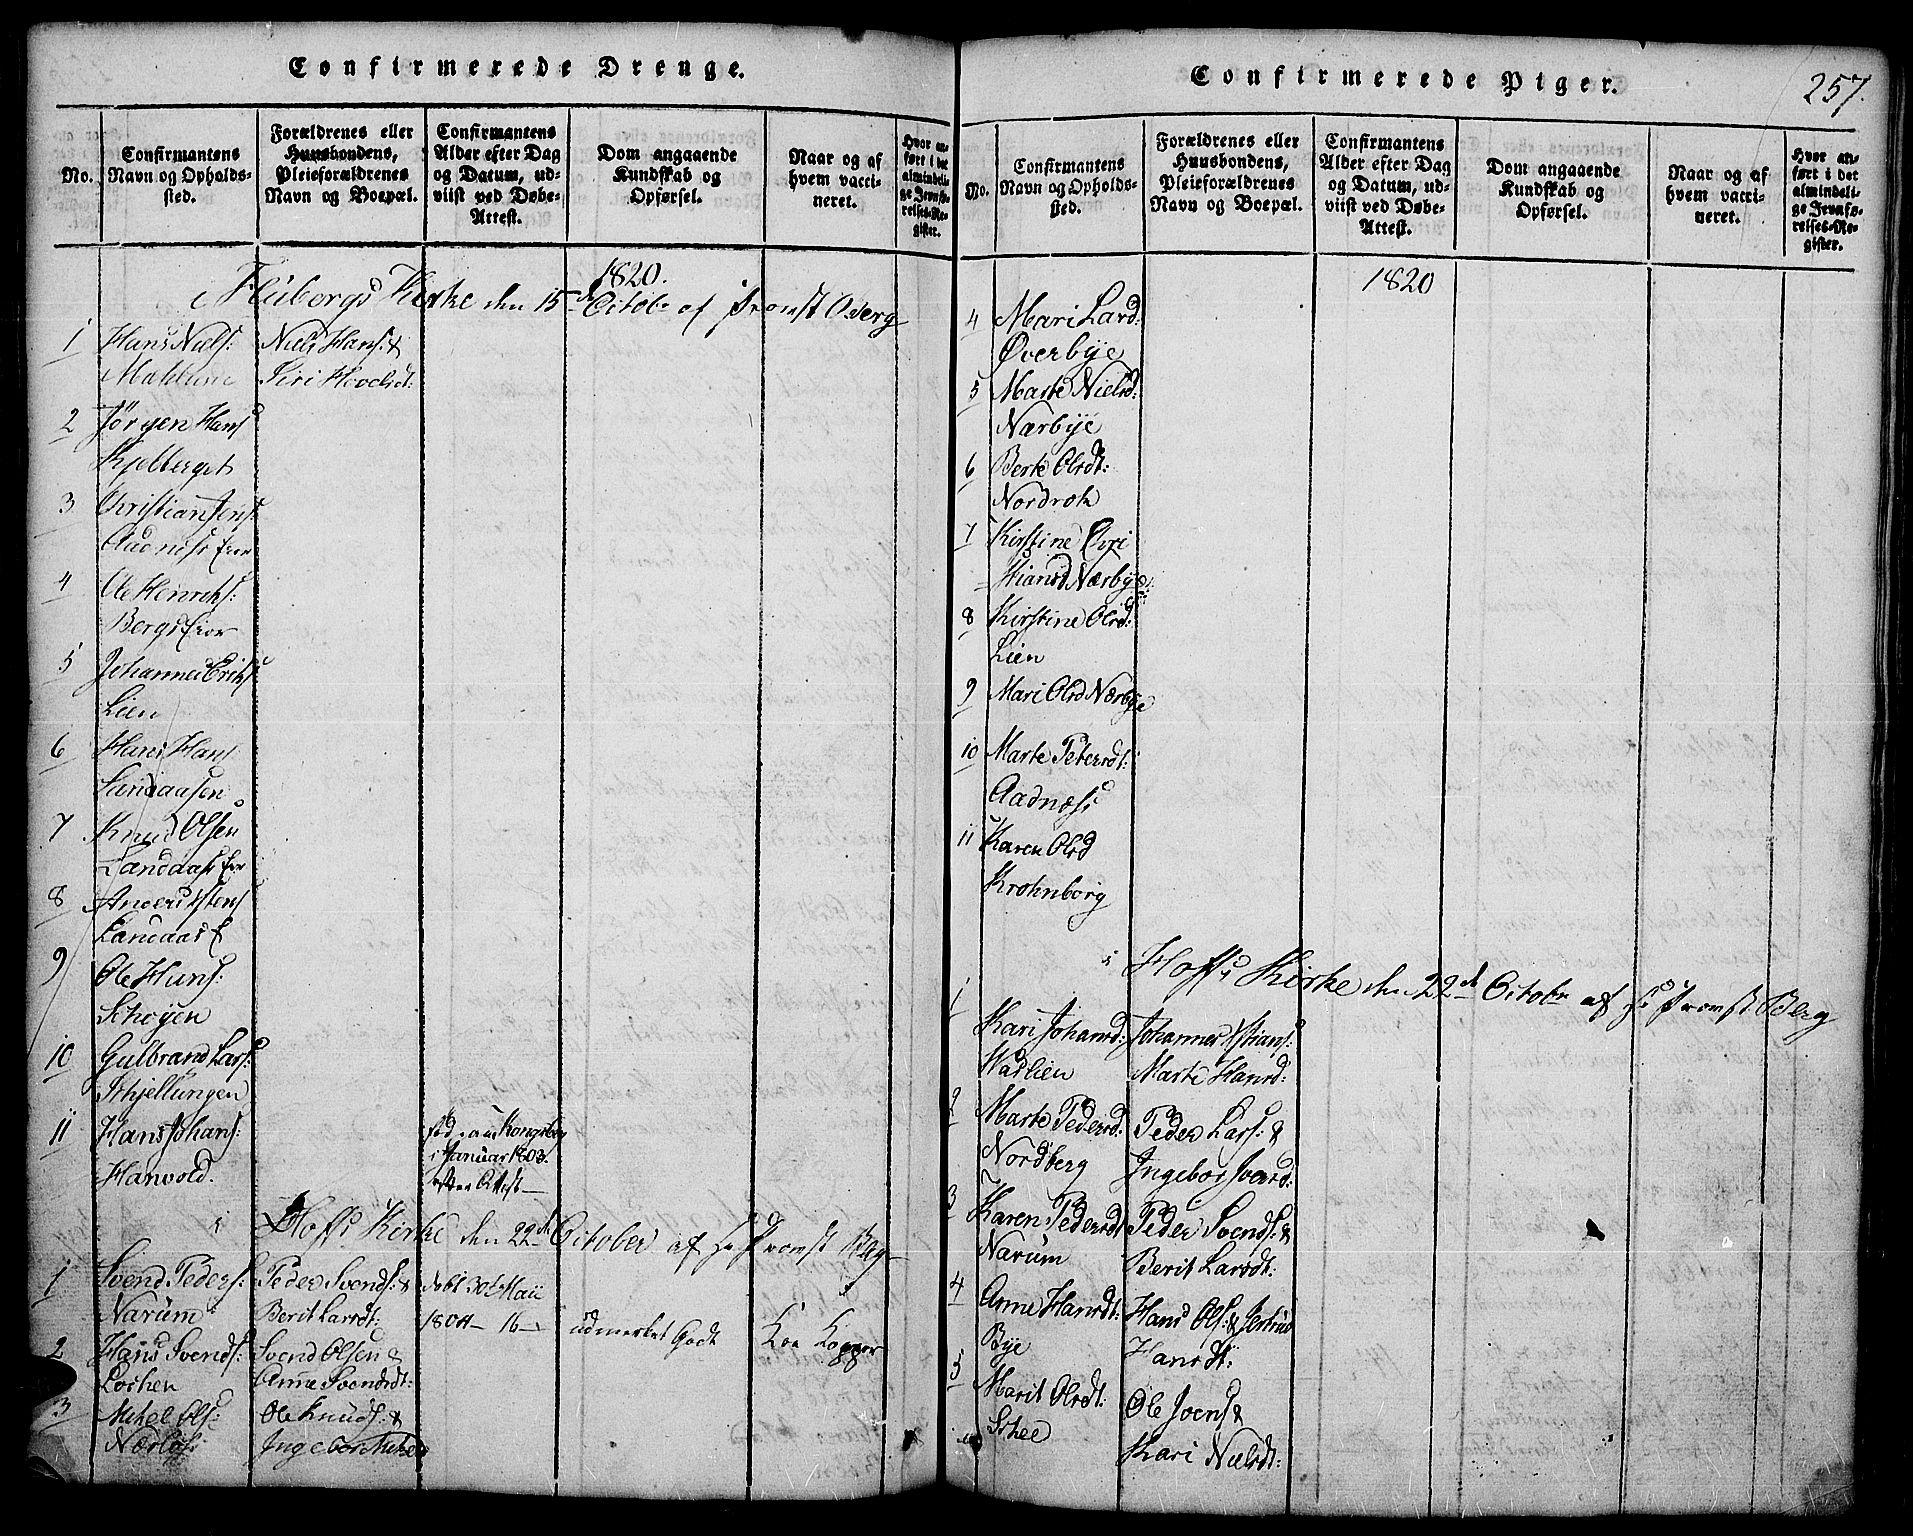 Confirmerede Drenge.
No.
Confirmantens Navn og Opholds-sted.
Forældrenes eller Huusbondens, Pleieforældrenes Navn og Boepæl.
Confirmantens Alder efter Dag og Datum, ud-viist ved Døbe-Attest.
Dom angaaende Kundskab og Opførsel.
Naar og af hvem vacci-neret.
Hvor an-ført i det almindeli-ge Jevnfø-relses-Re-gister.
1820.
i Flubergs Kirke den 15de Octobr af Provst Berg
1 Hans Niels: Niels Hans: &
Mæhlum Siri Hovelsdt:
2 Jørgen Hans
Kjelberget
3 Christian Jens:
Aadnæss Eier
4 Ole Henrichs:
Bergs Eier
5 Johannes Erichs:
Lien
6 Hans Hans
Landaasen
7 Knud Olsen
Landaas Eier
8 Anders
Landaas E
9 Ole Hans:
Schøyen
10 Gulbrand Lars:
Schjellungen
11 Hans Johans: fød paa Kongsberg
i Januar 1803.
Harvold. efter Attest
i Hoffs Kirke den 22de October af Hr Provst Berg
1 Svend Peders: Peder Svends: & døbt 30te Maii
Narum Berit Larsdt: 1804 - 16 - udmerket Godt Koe Kopper
2 Hans Svends: Svend Olsen &
Lochen Anne Svendsdt:
3 Mikel Ols: Ole Knuds: &
Nærløs Ingebor Mikels
Confirmerede Piger.
257.
No.
Confirmantens Navn og Opholds-sted.
Forældrenes eller Huusbondens, Pleieforældrenes Navn og Boepæl.
Confirmantens Alder efter Dag og Datum, ud-viist ved Døbe-Attest.
Dom angaaende Kundskab og Opførsel.
Naar og af hvem vacci-neret.
Hvor an-ført i det almindeli-ge Jevnfø-relses-Re-gister.
1820
4 Mari Larsd:
Øverbye
5 Marte Nielsd:
Nærbye
6 Berte Olsdt:
Nordroh
7 Kirstine
Nærbye
8 Kirstine Olsd:
Lien
9 Mari Olsd Nærbye
10 Marte Petersdt:
Aadnæss
11 Karen Olsd
Krohnborg
i Hoffs Kirke den 22de Octobr af Hr Provst Berg
1 Kari Johansd: Johannes
Wadlien Marte Hansd:
2 Marte Pedersd: Peder Lars: &
Nordberg Ingebor Svendsd:
3 Karen Pedersdt Peder Svends: &
Narum Berit Larsdt:
4 Anne Hansdt: Hans Ols: & Jertrud
Bye Hansdt:
5 Marit Olsdt: Ole Ivens &
Schee Kari Nielsdt: